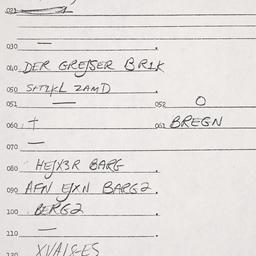 021
030 —
040 DER GREJSER BR1K
050 SHTLKL ZAMD
051 — 052 O
060 † 061 BREGN
070 —
080 HEJX3R BARG
090 AFN EJXN BARG2
100 BERG2
110 —
120 XVAJSES